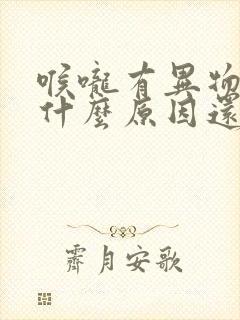 喉嚨有異物
什麼原因還
霽月安歌